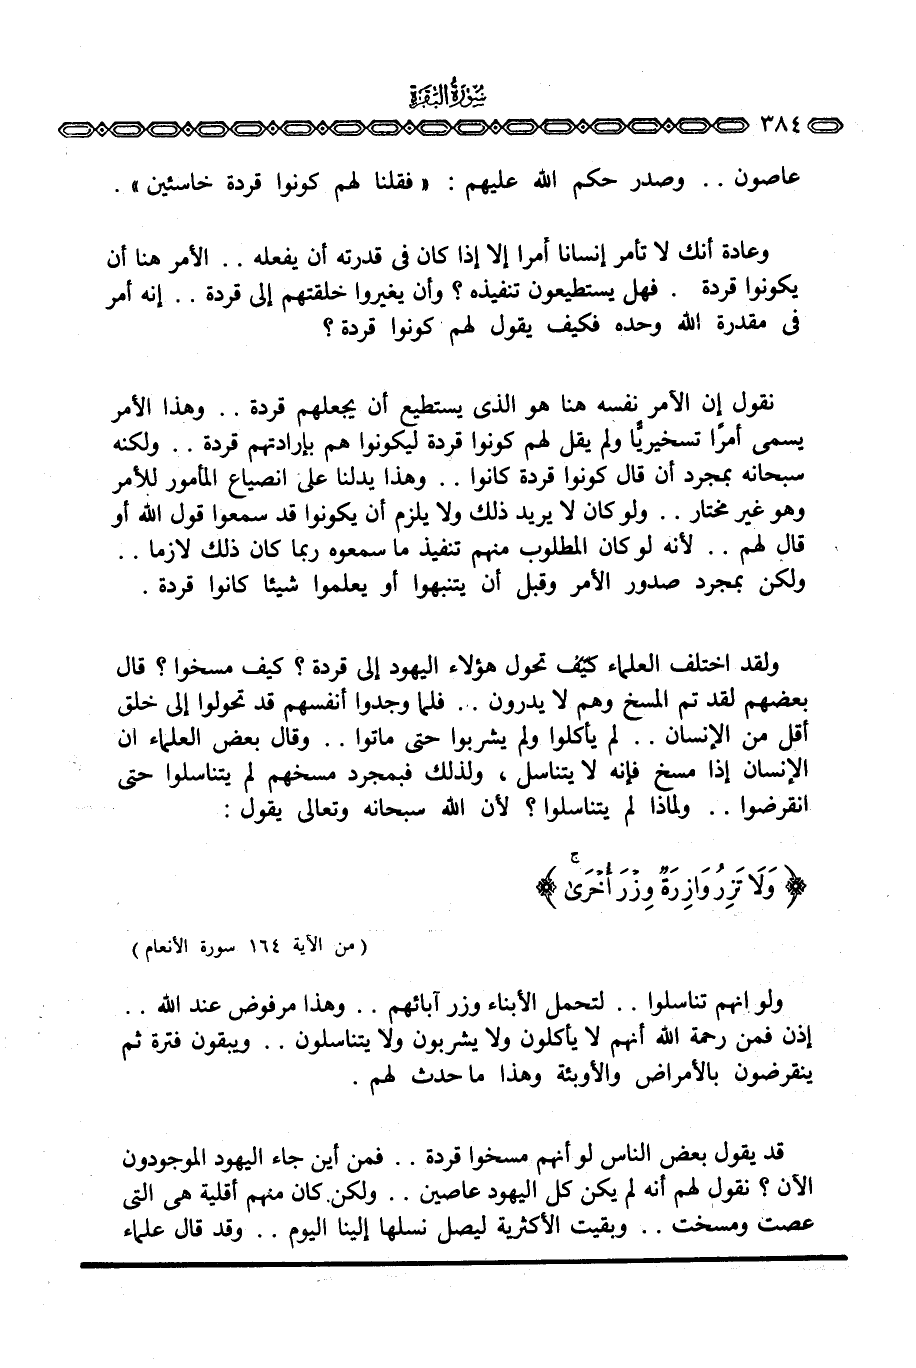 سورة البقرة
٣٨٤
عاصون .. وصدر حكم الله عليهم : « فقلنا لهم كونوا قردة خاسئين » .
وعادة أنك لا تأمر إنسانا أمرا إلا إذا كان فى قدرته أن يفعله .. الأمر هنا أن
يكونوا قردة . فهل يستطيعون تنفيذه ؟ وأن يغيروا خلقتهم إلى قردة .. إنه أمر
فى مقدرة الله وحده فكيف يقول لهم كونوا قردة ؟
نقول إن الآمر نفسه هنا هو الذى يستطيع أن يجعلهم قردة .. وهذا الأمر
يسمى أمرًا تسخيريًّا ولم يقل لهم كونوا قردة ليكونوا هم بإرادتهم قردة .. ولكنه
سبحانه بمجرد أن قال كونوا قردة كانوا .. وهذا يدلنا على انصياع المأمور للأمر
وهو غير مختار .. ولو كان لا يريد ذلك ولا يلزم أن يكونوا قد سمعوا قول الله أو
قال لهم .. لأنه لو كان المطلوب منهم تنفيذ ما سمعوه ربما كان ذلك لازما ..
ولكن بمجرد صدور الأمر وقبل أن يتنبهوا أو يعلموا شيئا كانوا قردة .
ولقد اختلف العلماء كيْف تحول هؤلاء اليهود إلى قردة ؟ كيف مسخوا ؟ قال
بعضهم لقد تم المسخ وهم لا يدرون .. فلما وجدوا أنفسهم قد تحولوا إلى خلق
أقل من الإنسان .. لم يأكلوا ولم يشربوا حتى ماتوا .. وقال بعض العلماء ان
الإنسان إذا مسخ فإنه لا يتناسل ، ولذلك فبمجرد مسخهم لم يتناسلوا حتى
انقرضوا .. ولماذا لم يتناسلوا ؟ لأن الله سبحانه وتعالى يقول :
﴿ وَلَا تَزِرُ وَازِرَةٌ وِزْرَ أُخْرَىٰ ۚ ﴾
( من الآية ١٦٤ سورة الأنعام )
ولو انهم تناسلوا .. لتحمل الأبناء وزر آبائهم .. وهذا مرفوض عند الله ..
إذن فمن رحمة الله أنهم لا يأكلون ولا يشربون ولا يتناسلون .. ويبقون فترة ثم
ينقرضون بالأمراض والأوبئة وهذا ما حدث لهم .
قد يقول بعض الناس لو أنهم مسخوا قردة .. فمن أين جاء اليهود الموجودون
الآن ؟ نقول لهم أنه لم يكن كل اليهود عاصين .. ولكن كان منهم أقلية هى التى
عصت ومسخت .. وبقيت الأكثرية ليصل نسلها إلينا اليوم .. وقد قال علماء